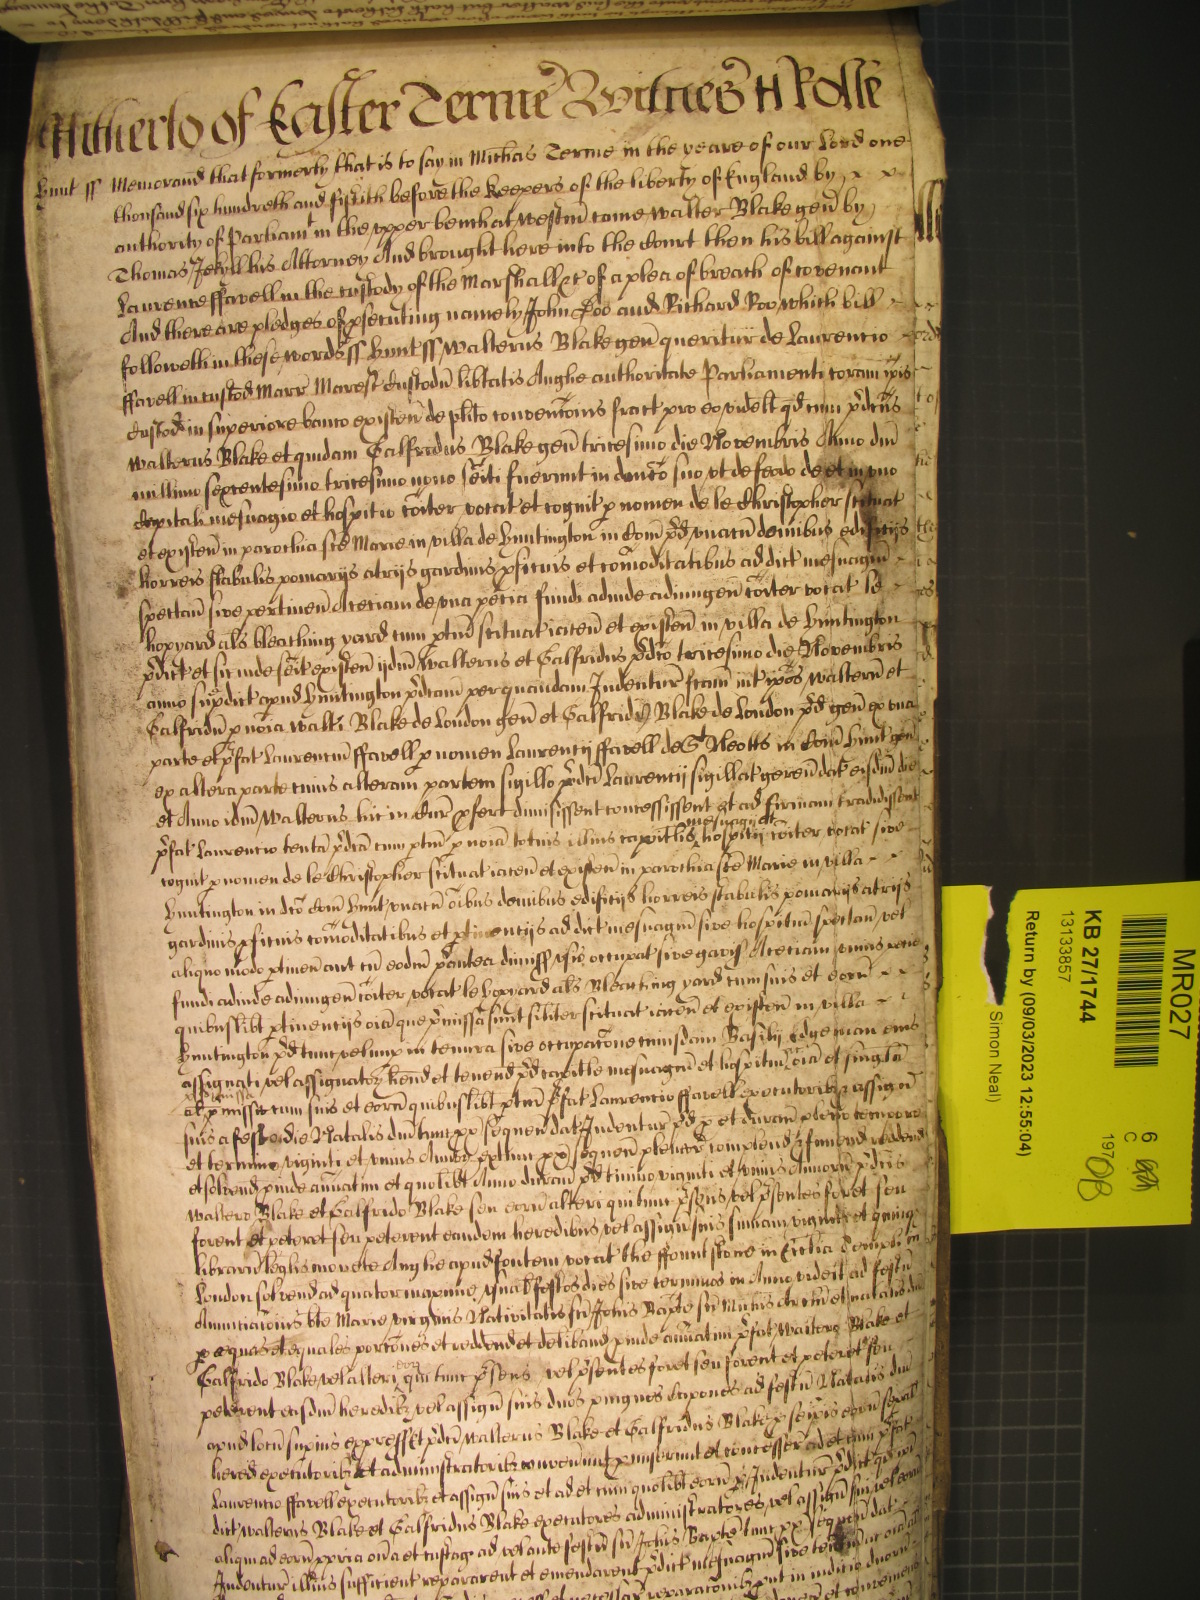 Hitherto of Easter Terme Witnes H Rolle
Hunt ss Memorand that formerly that is to say in Michas Terme in the yeare of our Lord one
thousand six hundreth and fiftith before the keepers of the liberty of England by
authority of Parliamt in the upper bench at Westm came Walter Blake gen by
Thomas Jekyll his Attorney And brought here into the Court then his bill against
Laurence ffavell in the custody of the Marshall &c of a plea of breach of covenant
And there are pledges of psecuting namely John Doo and Richard Roo which bill
followeth in these words ss Hunt ss Walterus Blake gen queritur de Laurentio
ffavell in custod Marr Maresc Custodu libtatis Anglie authoritate Parliamenti coram ipis
Custod in superiore banco existen de plito convencois fract pro eo videlt qd cum pdcus
Walterus Blake et quidam Galfridus Blake gen tricesimo die Novembris Anno dni
millimo sexcentesimo tricesimo nono seiti fuerunt in dnico suo ut de feodo de et in uno
Capitali mesuagio et hospitio coiter vocat et cognit p nomen de le Christopher scituat
et existen in parochia sce Marie in villa de Huntington in Com pd unacum domibus edificijs
horreis stabulis pomarijs atrijs gardinis pficuis et comoditatibus ad dict mesuagium
spectan sive pertinen Aceciam de una pecia fundi adinde adiungen coiter vocat le
hopyard als bleaching yard cum ptin scituat iacen et existen in villa de Huntington
pdict et sic inde seit existen ijdm Walterus et Galfridus pdco tricesimo die Novembris
anno supdict apud Huntington pdcam per quandam Indentur fcam int ipos Walterum et
Galfridum p noia Walti Blake de London gen et Galfridi Blake de London pd gen ex una
parte et pfat Laurentium ffavell p nomen Laurentij ffavell de St Neotts in Com Hunt gen
ex altera parte cuius alteram partem sigillo pdci Laurentij sigillat geren dat eisdm die
et Anno idm Walterus hic in Cur pfert dimisissent concessissent et ad firmam tradidissent
pfat Laurentio tenta pdca cum ptin p noia totius illius capitlis mesuagij et hospitij coiter vocat sive
cognit p nomen de le Christopher scituat iacen et existen in parochia sce Marie in villa
Huntington in dco Com Hunt unacum oibus domibus edificijs horreis stabulis pomarijs atrijs
gardinis pficuis comoditatibus et ptinentijs ad dict mesuagium sive hospitium spectan vel
aliquo modo ptinen aut cu eodm pantea dimiss usis occupat sive gavis Aceciam unius pecie
fundi adinde adiungen coiter vocat le hopyard als Bleaching yard cum suis et eorum
quibuslibt ptinentijs oia que pmissa sunt siliter scituat iacen et existen in villa
Huntington pd tunc vel nup in tenura sive occupacone cuiusdam Basilij Edgeman eius
assignati vel assignator hend et tenend pd capitle mesuagium et hospitium oia et singla
al pmissa cum suis et eorum quibuslibt ptin pfat Laurentio ffavell executorib z assign
suis a festo die Natalis dni tunc px sequen dat Indentur pd p et duran pleno tempore
et termino viginti et unius Annor extunc px sequen plenar complend z finiend reddend
et solvend pinde annatim et quolibt Anno duran pd timino viginti et unius Annorum pdcis
Waltero Blake et Galfrido Blake seu eorum alteri qui tunc psens vel psentes foret seu
forent et peteret seu peterent eandem heredibus vel assign suis summam viginti et quinq
librarum leglis monete Anglie apud fontem vocat the ffount stone in Ecclia Templi in
London solvend ad quatuor maxime usual festos dies sive terminos in Anno videlt ad festu
Annuntiacionis bte Marie virginis Nativitatis sci Johis Bapte sci Michis Archi et natalis dni
p equas et equales porcones et reddend et deliband pinde annatim pfat Waltero Blake et
Galfrido Blake vel alteri eor qui tunc psens vel psentes foret seu forent et peteret seu
peterent eisdm heredib vel assign suis duos pingues Capones ad festu Natalis dni
apud locum supius express Et pdci Walterus Blake et Galfridus Blake p seipis eorum sepal
hered executorib et administratorib convenerunt pmiserunt et concesser ad et cum pfat
Laurentio ffavell executorib et assign suis et ad et cum quolibt eorum p Indentur pdict qd ipi
dict Walterus Blake et Galfridus Blake executores administratores vel assign sui vel eorum
aliqui ad eorum ppria onera et custag ad vel ante festum sci Johis Bapte tunc px sequen dat
Indentur illius sufficient repararent et emendarent pdict mesuagium sive
reparaconib put in iudicio duorum
MR027
KB 27/1744
13133857
Return by (09/03/2023 12:55:04)
Simon Neal)
6
C
197